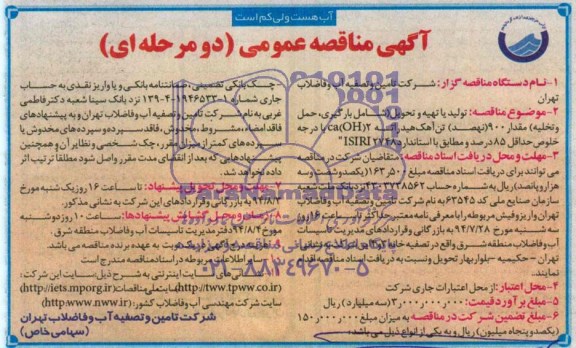 آب هست ولی کم است
آگهی مناقصه عمومی (دو مرحله ای)
۱-نام دستگاه مناقصه گزار: شرکت تامین و تصفیه آب و فاضلاب
تهران
۲-موضوع مناقصه: تولید یا تهیه و تحویل (شامل بارگیری، حمل
و تخلیه) مقدار ۹۰۰ (نهصد) تن آهک هیدراته ca(OH)۲ با درجه
خلوص حداقل ۸۵ درصد و مطابق با استاندارد "ISIRI ۲۷۴۸"
۳-مهلت و محل دریافت اسناد مناقصه: متقاضیان شرکت در مناقصه
می توانند برای دریافت اسناد مناقصه مبلغ ۱۶۳٬۵۰۰ (یکصد و شصت و سه
هزار و پانصد) ریال به شماره حساب
سازمان صنایع ملی کد ۶۳۵۴۵ به نام شرکت تامین و تصفیه آب و فاضلاب
تهران واریز و فیش مربوطه را با معرفی نامه معتبر حداکثر تا ساعت ۱۶ روز
سه شنبه مورخ ۹۴/۷/۲۸ به بازرگانی و قراردادهای مدیریت تاسیسات
آب و فاضلاب منطقه شرق واقع در تصفیه خانه
تهران - حکیمیه - بلوار بهار تحویل و نسبت به دریافت اسناد مناقصه اقدام
نمایند.
۴-محل اعتبار: از محل اعتبارات جاری شرکت
۵-مبلغ برآورد قیمت: ۳٬۰۰۰٬۰۰۰٬۰۰۰ (سه میلیارد) ریال
۶-مبلغ تضمین شرکت در مناقصه: به میزان ۱۵۰٬۰۰۰٬۰۰۰
(یکصد و پنجاه میلیون) ریال و به یکی از انواع ذیل می باشد:
چک بانکی تضمینی، ضمانتنامه بانکی و یا واریز نقدی به حساب
جاری شماره ۱-۱۹۴۶۵۳۳-۴-۱۳۹ نزد بانک سینا شعبه دکتر فاطمی
غربی به نام شرکت تامین و تصفیه آب و فاضلاب تهران و به پیشنهادهای
فاقد امضاء، مشروط، مخدوش، فاقد سپرده و سپرده های مخدوش یا
سپرده های کمتر از میزان مقرر، چک شخصی و نظایر آن و همچنین
پیشنهادهایی که بعد از انقضای مدت مقرر واصل شود مطلقاً ترتیب اثر
داده نخواهد شد.
۷- مهلت و محل تحویل پیشنهاد: تا ساعت ۱۶ روز یک شنبه مورخ
۹۴/۸/۳ به بازرگانی و قراردادهای این شرکت به نشانی مذکور.
۸- زمان و محل گشایش پیشنهادها: ساعت ۱۰ روز دوشنبه
مورخ ۹۴/۸/۴ دفتر مدیریت تاسیسات آب و فاضلاب منطقه شرق
۹- هزینه درج آگهی در دو نوبت به عهده برنده مناقصه می باشد.
سایر اطلاعات مربوطه در اسناد مناقصه مندرج است
نشانی سایت های اینترنتی به شرح ذیل: سایت این شرکت:
(http://tww.tpww.co.ir) سایت ملی مناقصات (http://iets.mporg.ir)
سایت شرکت مهندسی آب و فاضلاب کشور: (http:www.nww.ir)
شرکت تامین و تصفیه آب و فاضلاب تهران
(سهامی خاص)
ParsNamadData
۰۲۱-۸۸۳۴۹۶۷۰-۵